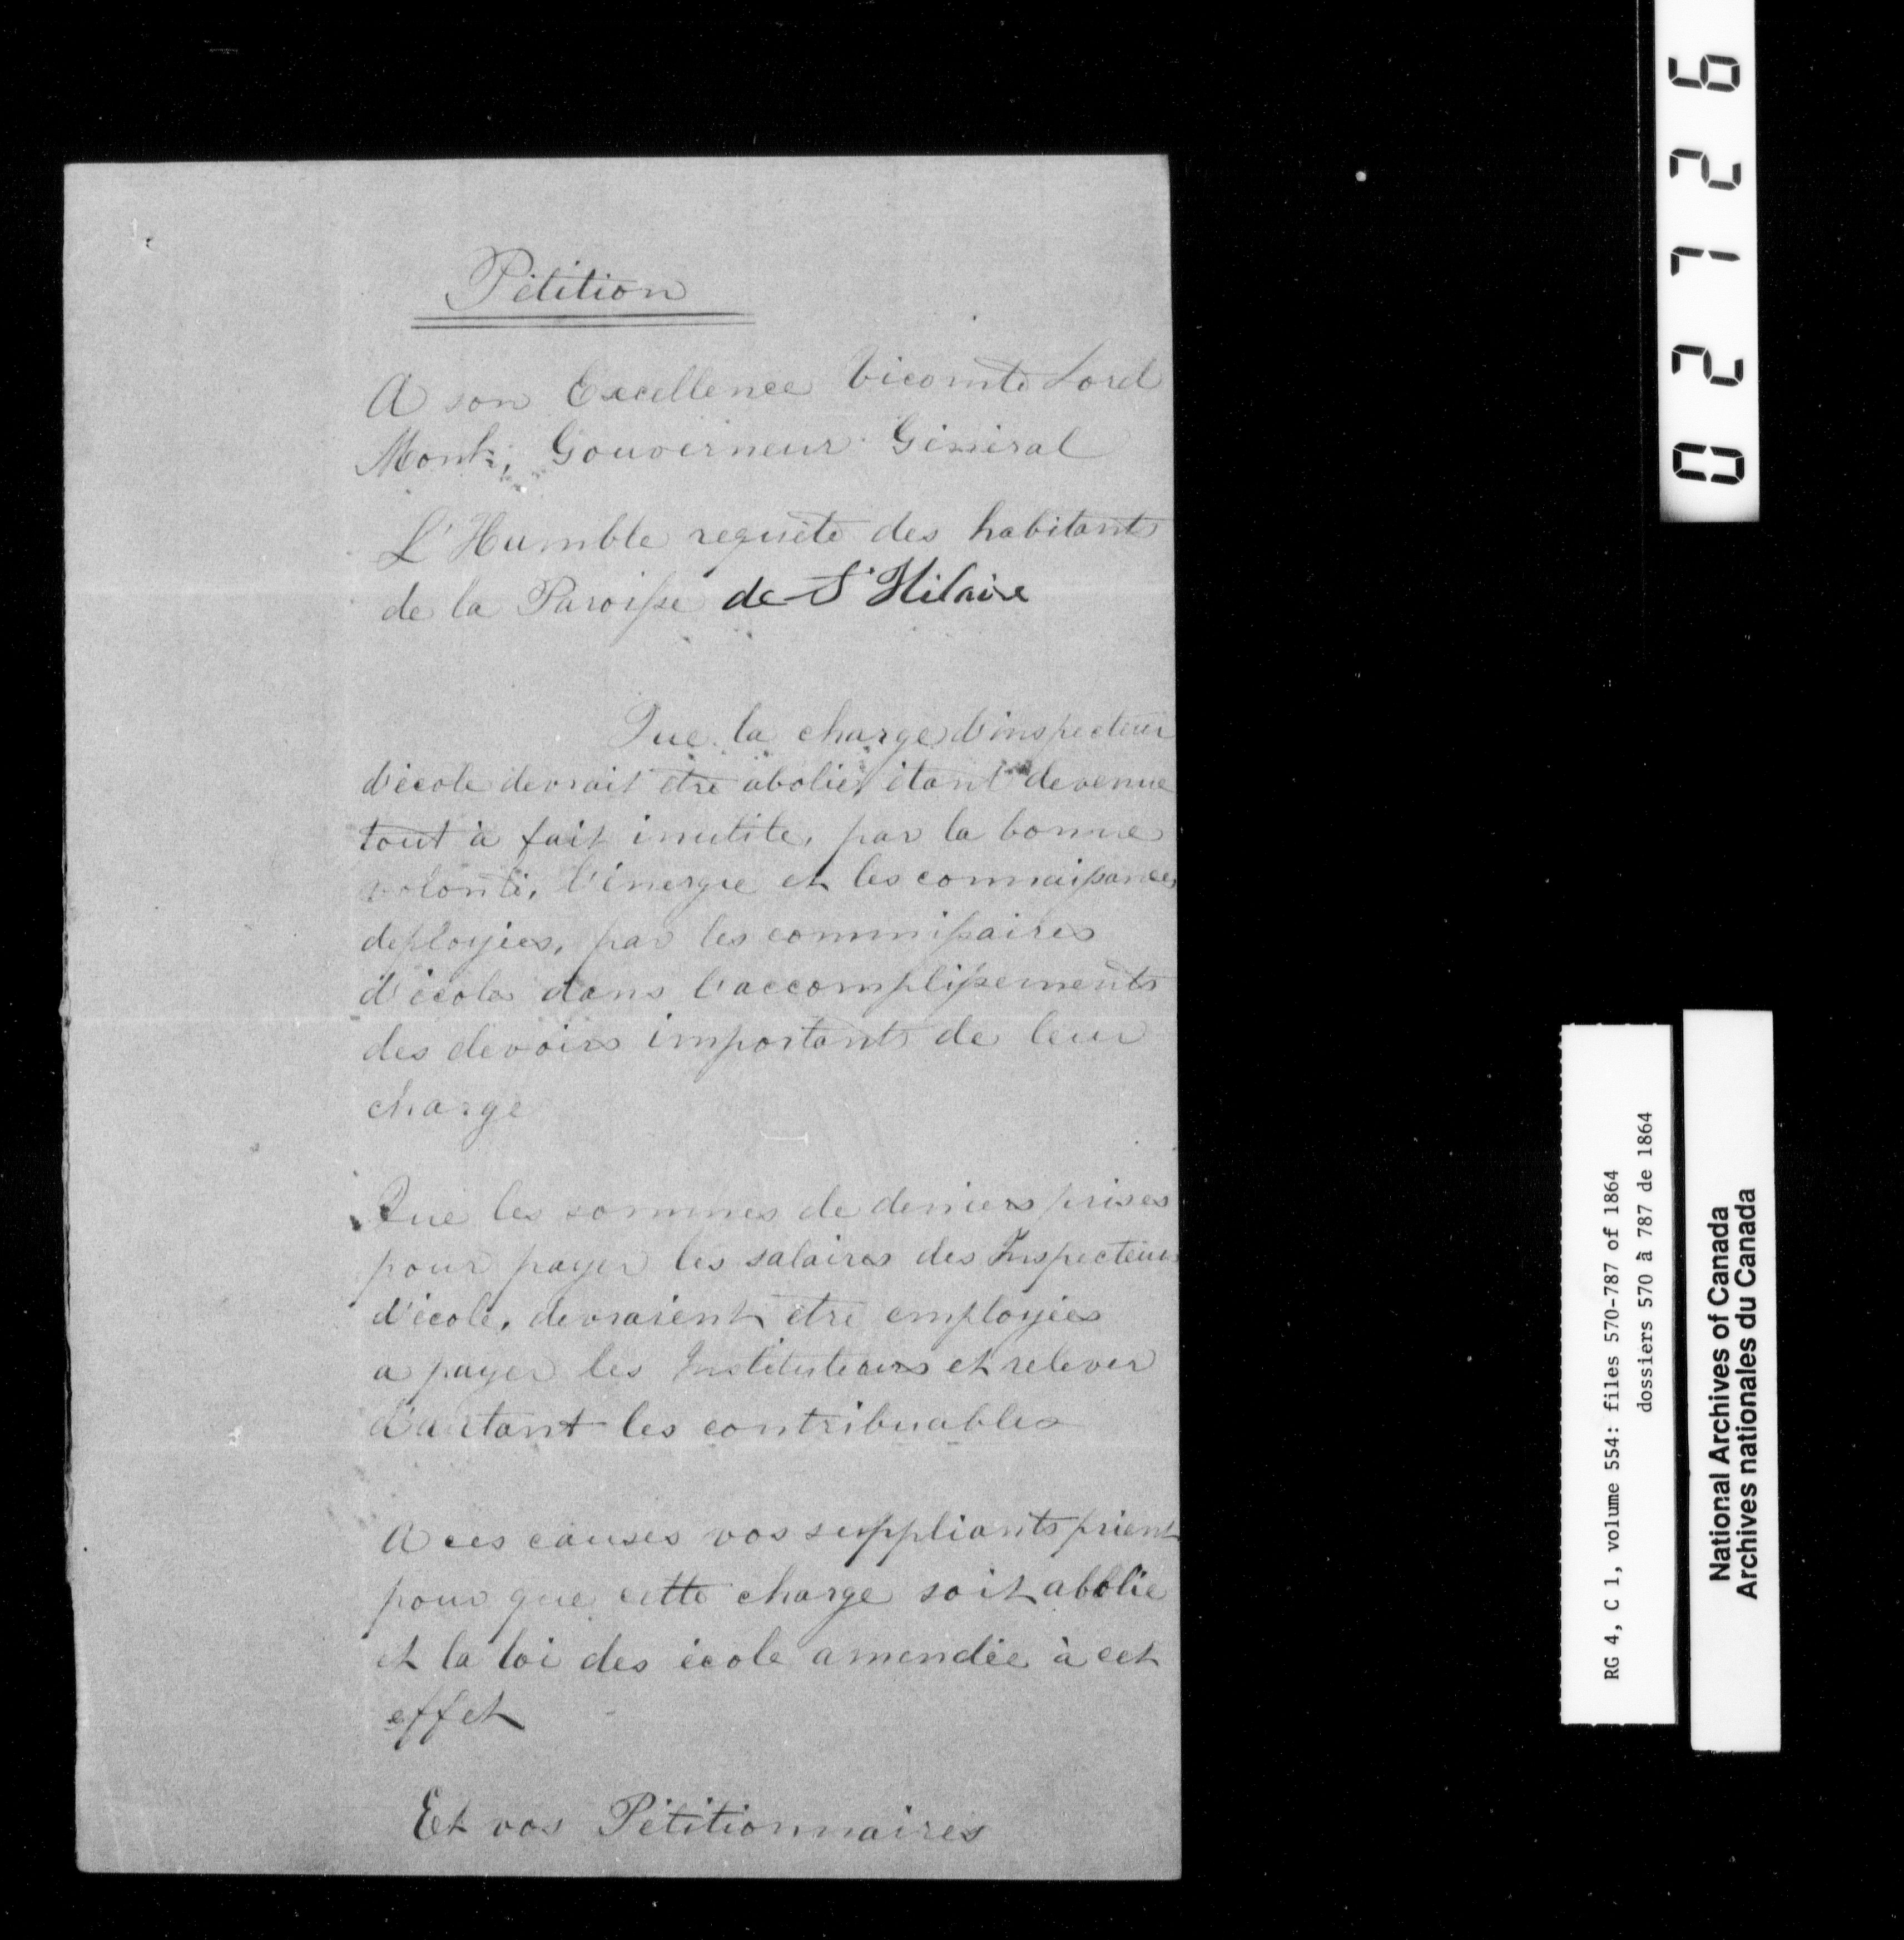 Pétition
A son Excellence Vicomte Lord
Monk, Gouverneur Général
L'Humble requête des habitants
de la Paroisse de St Hilaire
Que la charge d'inspecteur
d'école devrait être abolie, étant devenue
tout à fait inutile, par la bonne
volonté, l'énergie et les connaissances
deployées, par les commissaires
d'école dans l'accomplissements
des devoirs importants de leur
charge
Que les sommes de deniers prises
pour payer les salaires des Inspecteurs
d'école, devraient être employées
a payer les Instituteurs et relever
d'autant les contribuables
A ces causes vos suppliants prient
pour que cette charge soit abolie
et la loi des école amendée à cet
effet
Et vos Pétitionnaires
02726
RG 4, C 1, volume 554: files 570-787 of 1864
dossiers 570 à 787 de 1864
National Archives of Canada
Archives nationales du Canada